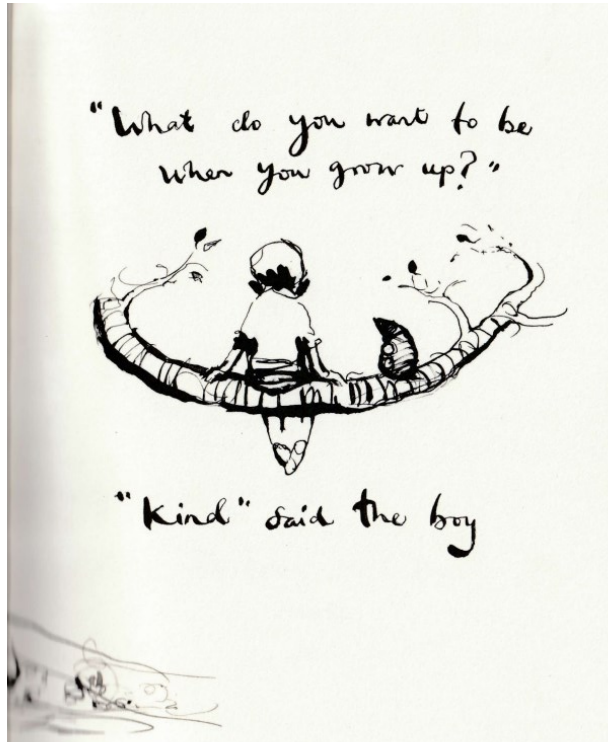 “What do you want to be
when you grow up?”
“Kind” said the boy